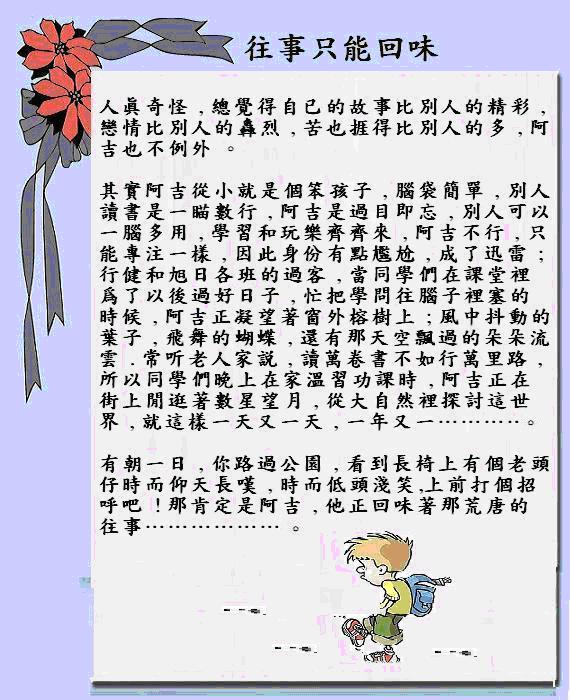 往事只能回味
人真奇怪，總覺得自已的故事比別人的精彩，
戀情比別人的轟烈，苦也捱得比別人的多，阿
吉也不例外 。
其實阿吉從小就是個笨孩子，腦袋簡單，別人
讀書是一瞄數行，阿吉是過目即忘，別人可以
一腦多用，學習和玩樂齊齊來，阿吉不行，只
能專注一樣，因此身份有點尷尬，成了迅雷；
行健和旭日各班的過客，當同學們在課堂裡
為了以後過好日子，忙把學問往腦子裡塞的
時候，阿吉正凝望著窗外榕樹上；風中抖動的
葉子，飛舞的蝴蝶，還有那天空飄過的朵朵流
雲．常听老人家說，讀萬卷書不如行萬里路，
所以同學們晚上在家溫習功課時，阿吉正在
街上閒逛著數星望月，從大自然裡探討這世
界，就這樣一天又一天，一年又一…………。
有朝一日，你路過公園，看到長椅上有個老頭
仔時而仰天長嘆，時而低頭淺笑,上前打個招
呼吧！那肯定是阿吉，他正回味著那荒唐的
往事……………… 。